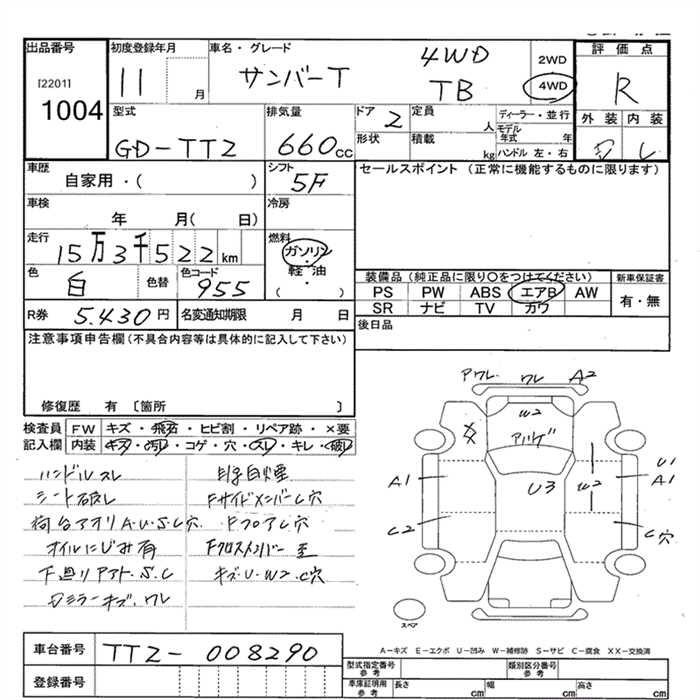 出品番号
[2201]
1004
初度登録年月
11 月
車名・グレード
サンバーT
4WD
TB
2WD
4WD
評価点
R
型式
GD-TT2
排気量
660cc
ドア
2
定員
人
ディーラー・並行
モデル年式 年
ハンドル 左・右
形状
積載
kg
外装
内装
車歴
自家用・( )
シフト
5F
セールスポイント (正常に機能するものに限ります)
車検
年 月( 日)
冷房
走行
15万3千522km
燃料
ガソリン・
軽油・
( )
色
白
色替
色コード
955
装備品 (純品に限り○をつけてください)
PS PW ABS エアB AW
SR ナビ TV カワ
新車保証書
有・無
R券
5.430円
名変通知期限 月 日
後日品
注意事項申告欄(不具合内容等は具体的に記入して下さい)
修復歴 有 〔箇所 〕
検査員 FW キズ・飛石・ヒビ割・リペア跡・×要
記入欄 内装 キズ・汚れ・コゲ・穴・スレ・キレ・破れ
ハンドルスレ
シート破レ
荷台アオリA.U.S.C穴
オイルにじみ有
下廻リ S.C
ミラーキズ.ワレ
Fサイドメンバー C穴
Fフロア C穴
Fクロスメンバー
キズ.U.W2.C穴
ワレ
A2
W2
U3
A1
C2
W2
U1
A1
C穴
スペア
A-キズ E-エクボ U-凹み W-補修跡 S-サビ C-腐食 XX-交換済
車台番号
TT2-008290
登録番号
型式指定番号
参考
類別区分番号
参考
車庫証明用
参考
長さ cm
幅 cm
高さ cm